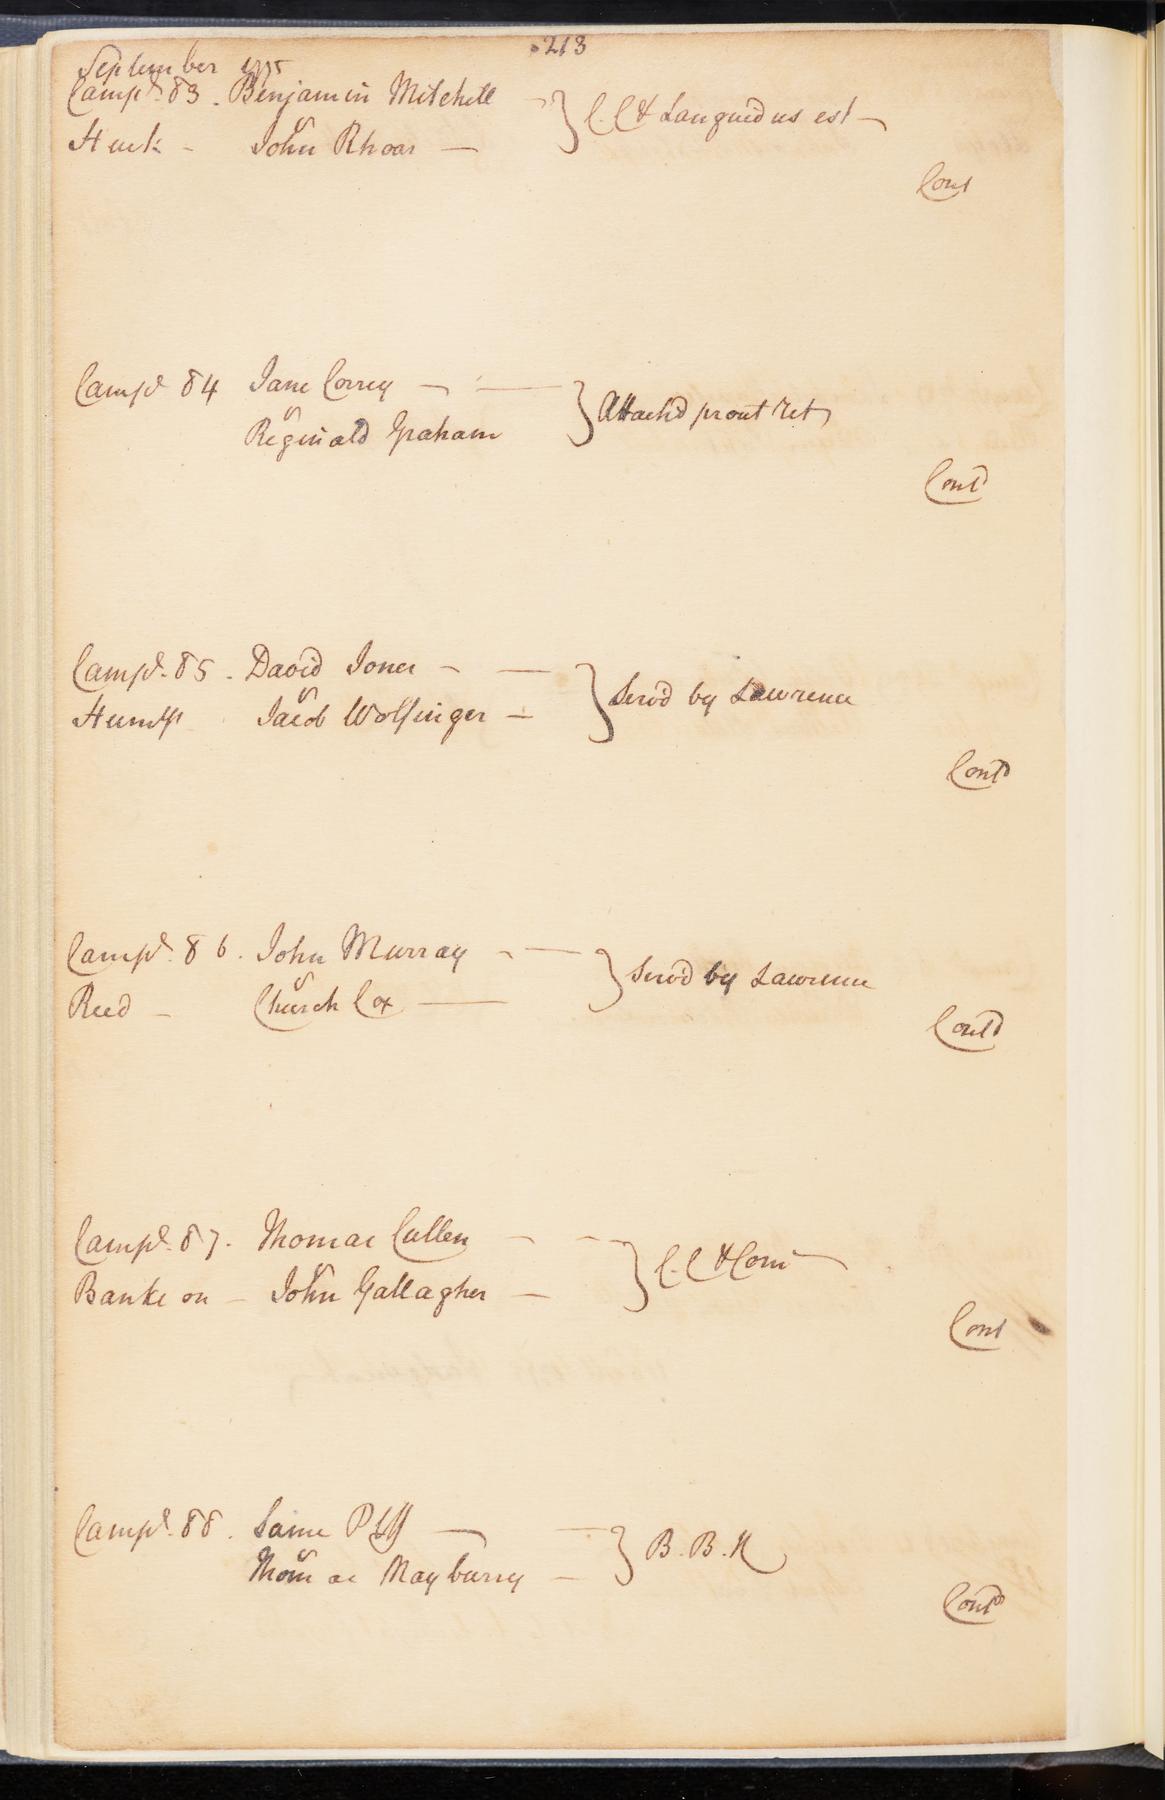 213
September 1775
Camp.d 83. Benjamin Mitchell
v
John Rhoar
C. C & Languidus est
Cont
Camp.d 84 Jane Correy
v
Reginald Graham
Attach'd prout Ret
Contd
Camp.d 85. David Jones
v
Humps Jacob Wolfinger
Serv'd by Lawrence
Contd
Camp.d 86. John Murray
v
Reed Church Cox
Serv'd by Lawrence
Contd
Camp.d 87. Thomas Cullen
v
Banks on John Gallagher
C. C & Com
Cont
Camp.d 88. Same Plff
v
Thomas Mayburry
B. B. N
Contd